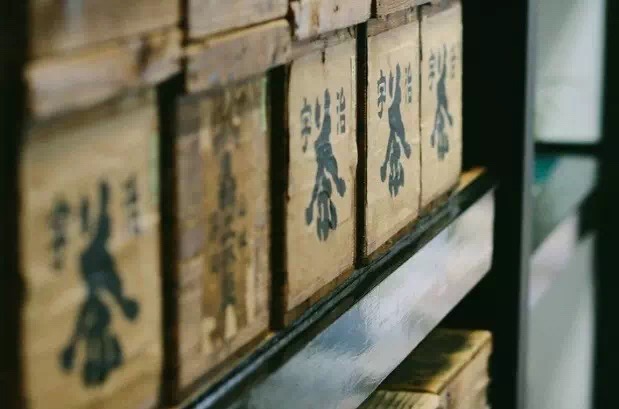 宇治
茶
宇治
茶
宇治
茶
宇治
茶